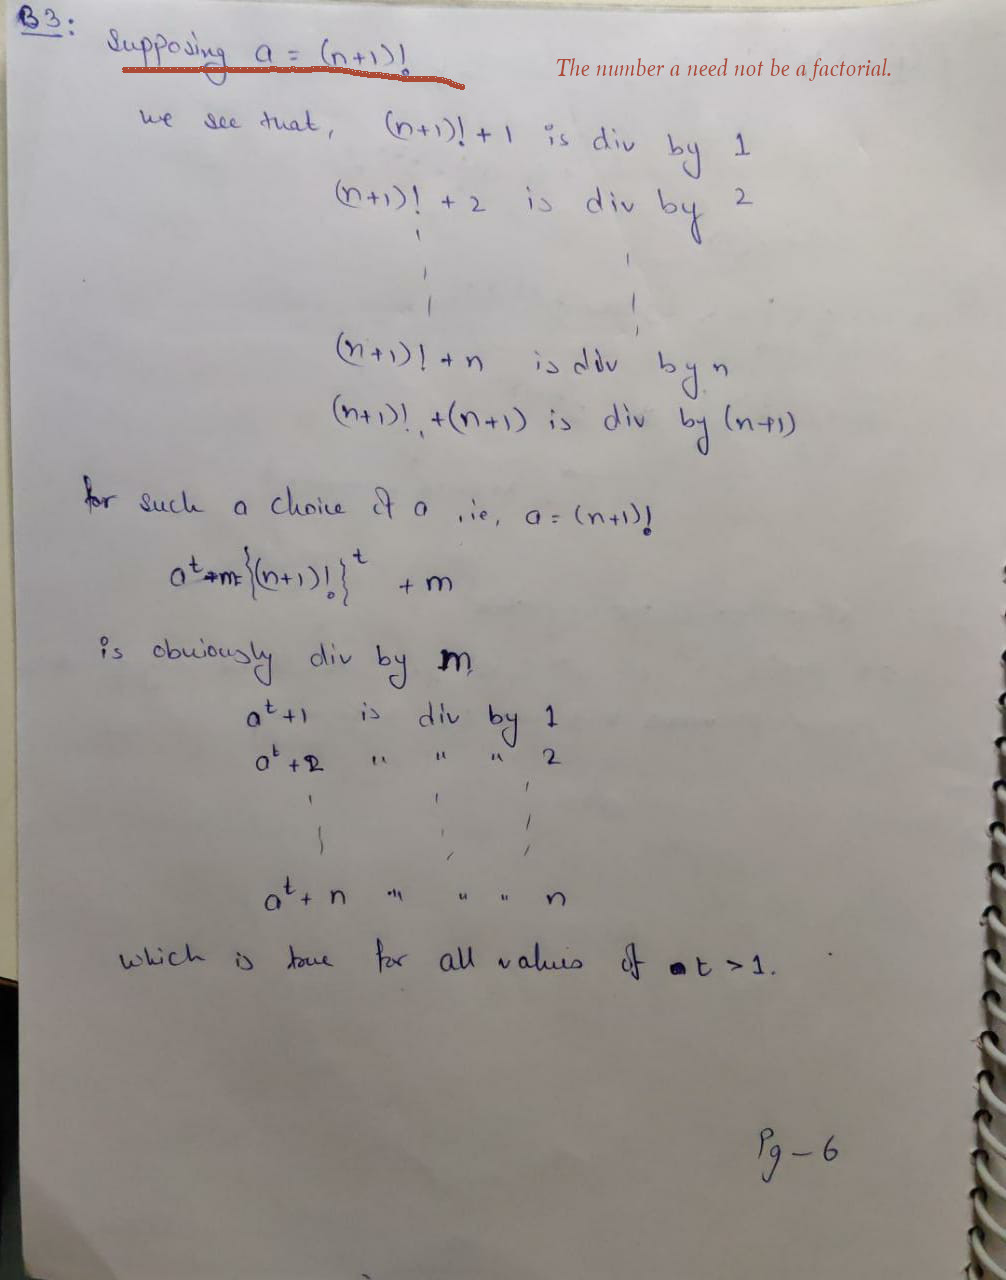 B3:
Supposing a = (n+1)!
The number a need not be a factorial.
we see that, (n+1)! + 1 is div by 1
(n+1)! + 2 is div by 2
(n+1)! + n is div by n
(n+1)! + (n+1) is div by (n+1)
for such a choice of a , ie, a = (n+1)!
a^t = {(n+1)!}^t + m
is obviously div by m
a^t + 1 is div by 1
a^t + 2 " " " 2
a^t + n " " " n
which is true for all values of t > 1.
Pg - 6